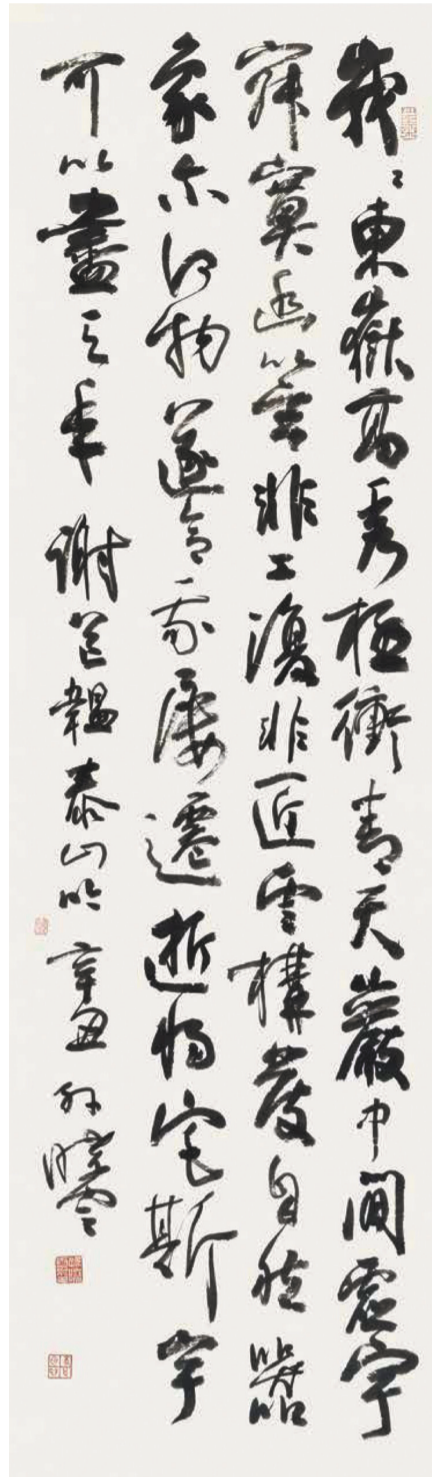 峩〻東嶽高秀極衝青天巖中間虛宇
寂寞幽以玄非工復非匠雲構發自然器
象尔何物遂令我屢遷逝將宅斯宇
可以盡天年 謝道韞泰山吟 辛丑 孫曉雲